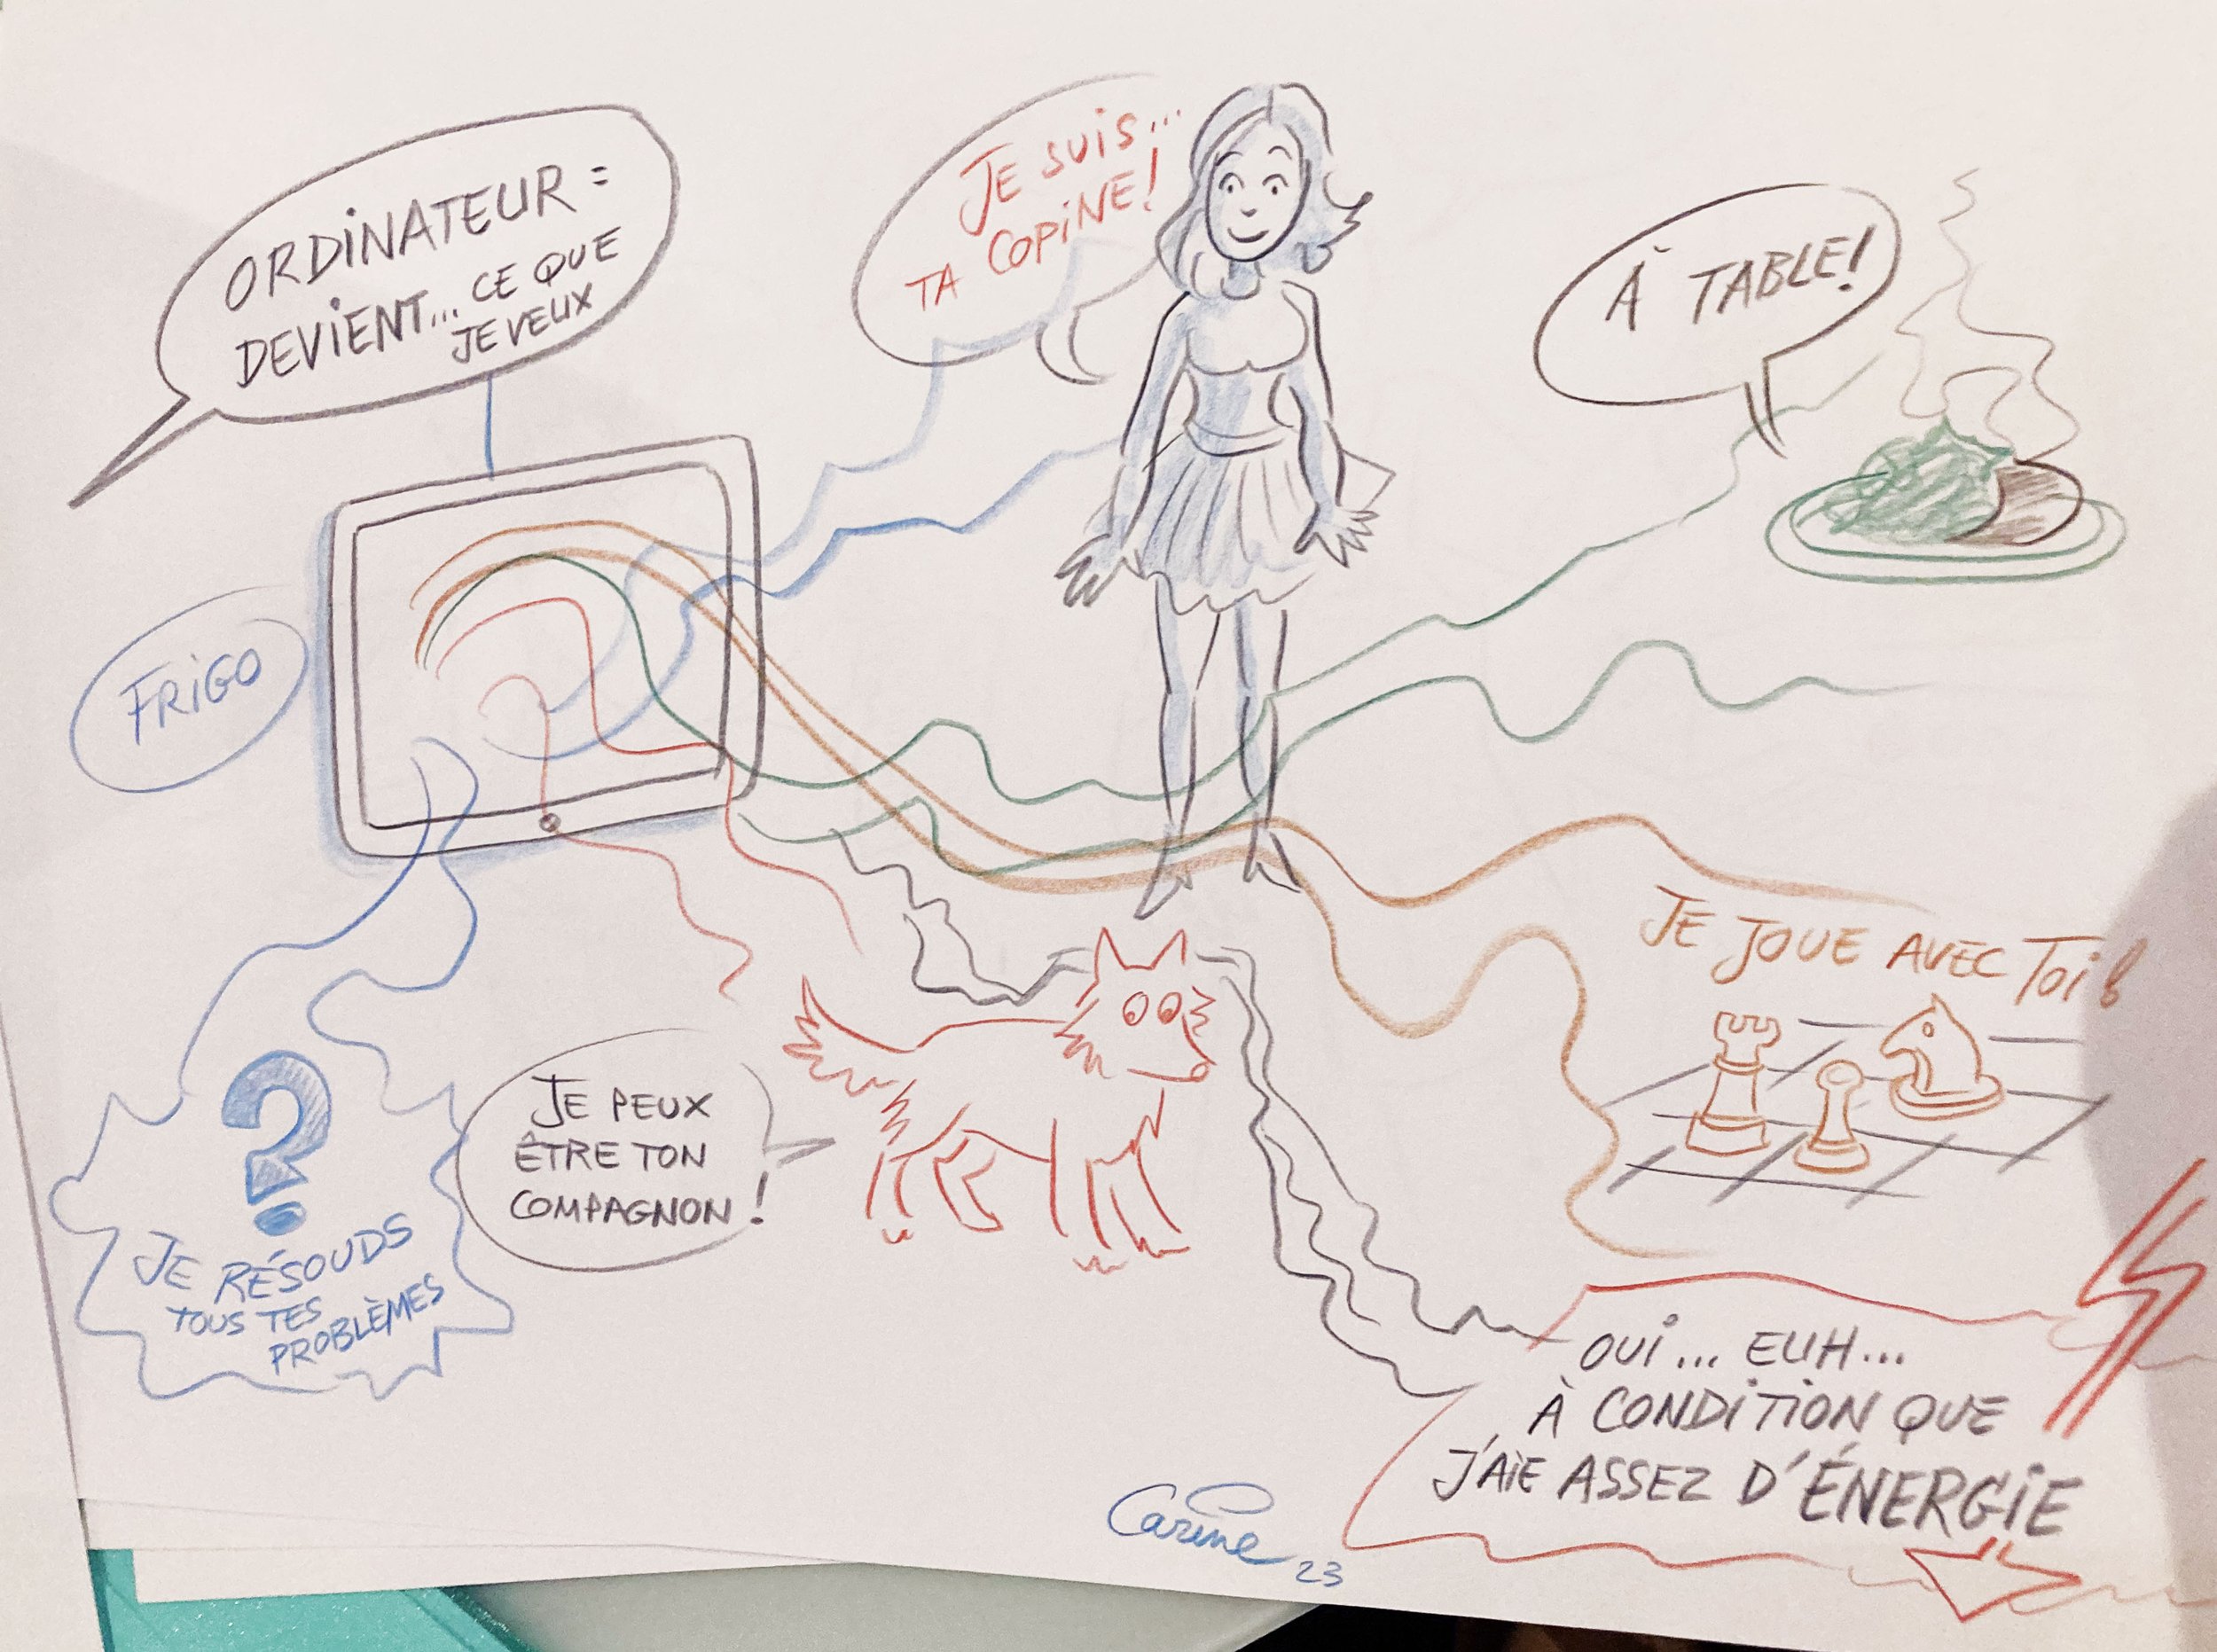 ORDINATEUR =
DEVIENT... CE QUE
JE VEUX
JE SUIS...
TA COPINE!
À TABLE!
FRIGO
JE JOUE AVEC TOI!
JE PEUX
ÊTRE TON
COMPAGNON!
?
JE RÉSOUDS
TOUS TES
PROBLÈMES
OUI... EUH...
À CONDITION QUE
J'AIE ASSEZ D'ÉNERGIE
Carine 23